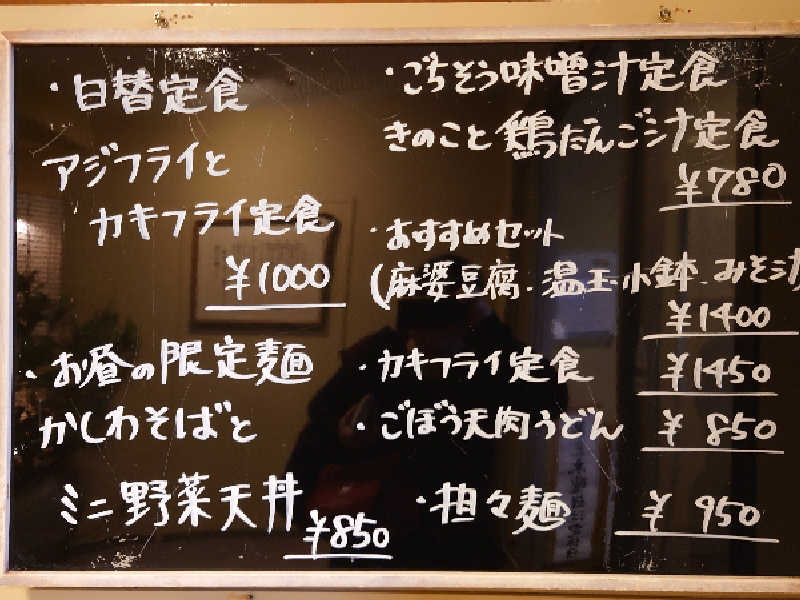 ・日替定食
アジフライと
カキフライ定食
¥1000
・お昼の限定麺
かしわそばと
ミニ野菜天丼
¥850
・ごちそう味噌汁定食
きのこと鶏だんご汁定食
¥780
・おすすめセット
(麻婆豆腐.温玉小鉢.みそ汁
¥1400
・カキフライ定食 ¥1450
・ごぼう天肉うどん ¥850
・担々麺 ¥950